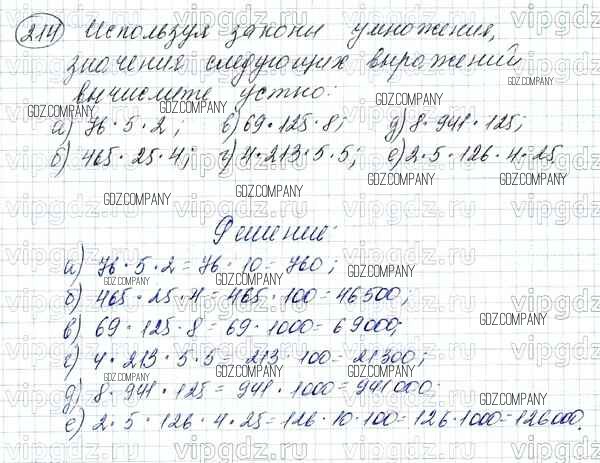 214 Используя законы умножения,
значения следующих выражений
вычислите устно:
а) 76 · 5 · 2; в) 69 · 125 · 8; д) 8 · 941 · 125;
б) 465 · 25 · 4; г) 4 · 213 · 5 · 5; е) 2 · 5 · 126 · 4 · 25.
Решение:
а) 76 · 5 · 2 = 76 · 10 = 760;
б) 465 · 25 · 4 = 465 · 100 = 46500;
в) 69 · 125 · 8 = 69 · 1000 = 69000;
г) 4 · 213 · 5 · 5 = 213 · 100 = 21300;
д) 8 · 941 · 125 = 941 · 1000 = 941000.
е) 2 · 5 · 126 · 4 · 25 = 126 · 10 · 100 = 126 · 1000 = 126000.
GDZ.COMPANY
vipgdz.ru